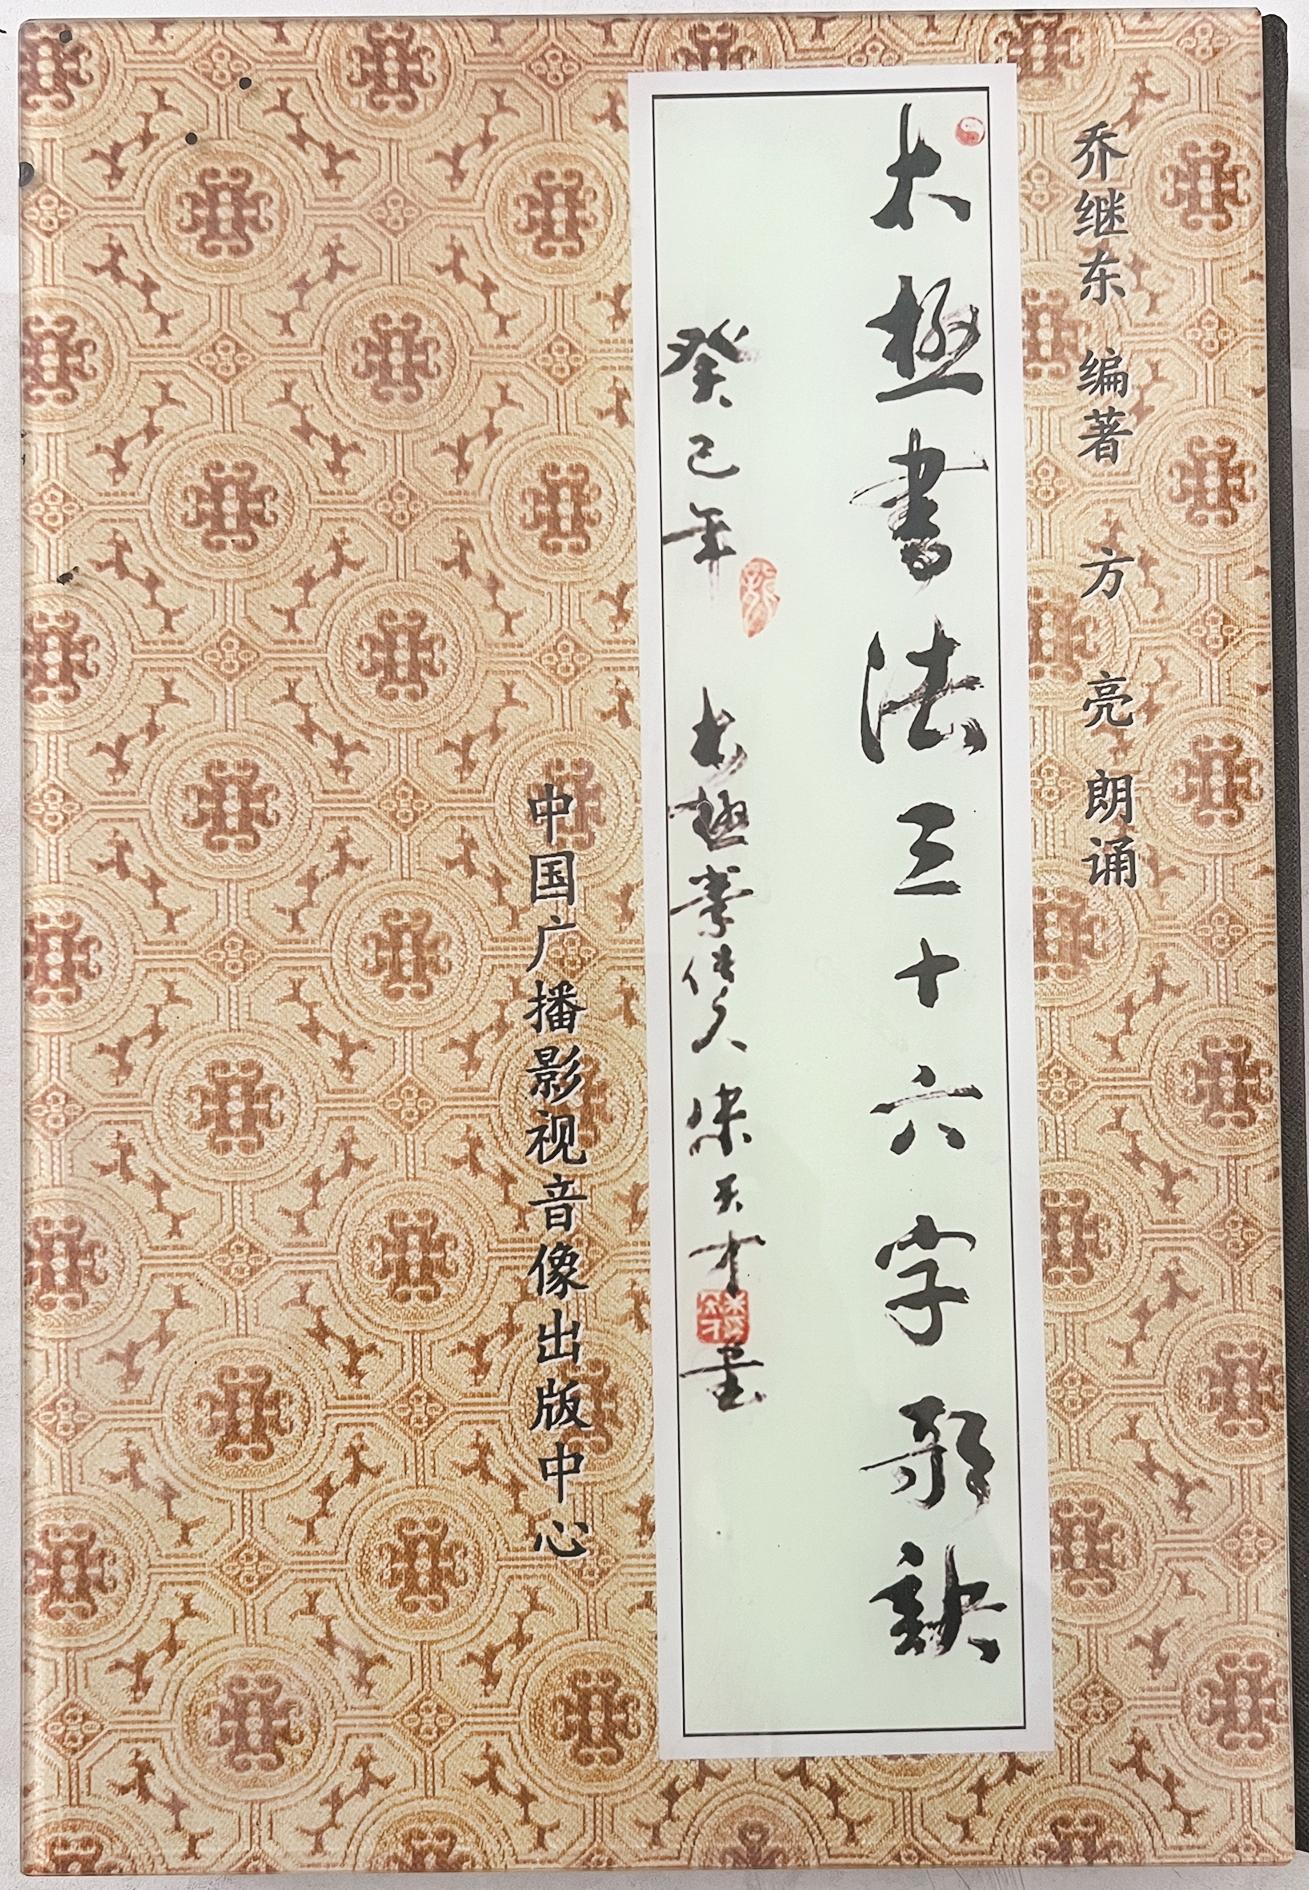 乔继东 编著 方亮 朗诵
太极書法三十六字歌訣
癸巳年 太極拳传人 宋天才 書
中国广播影视音像出版中心